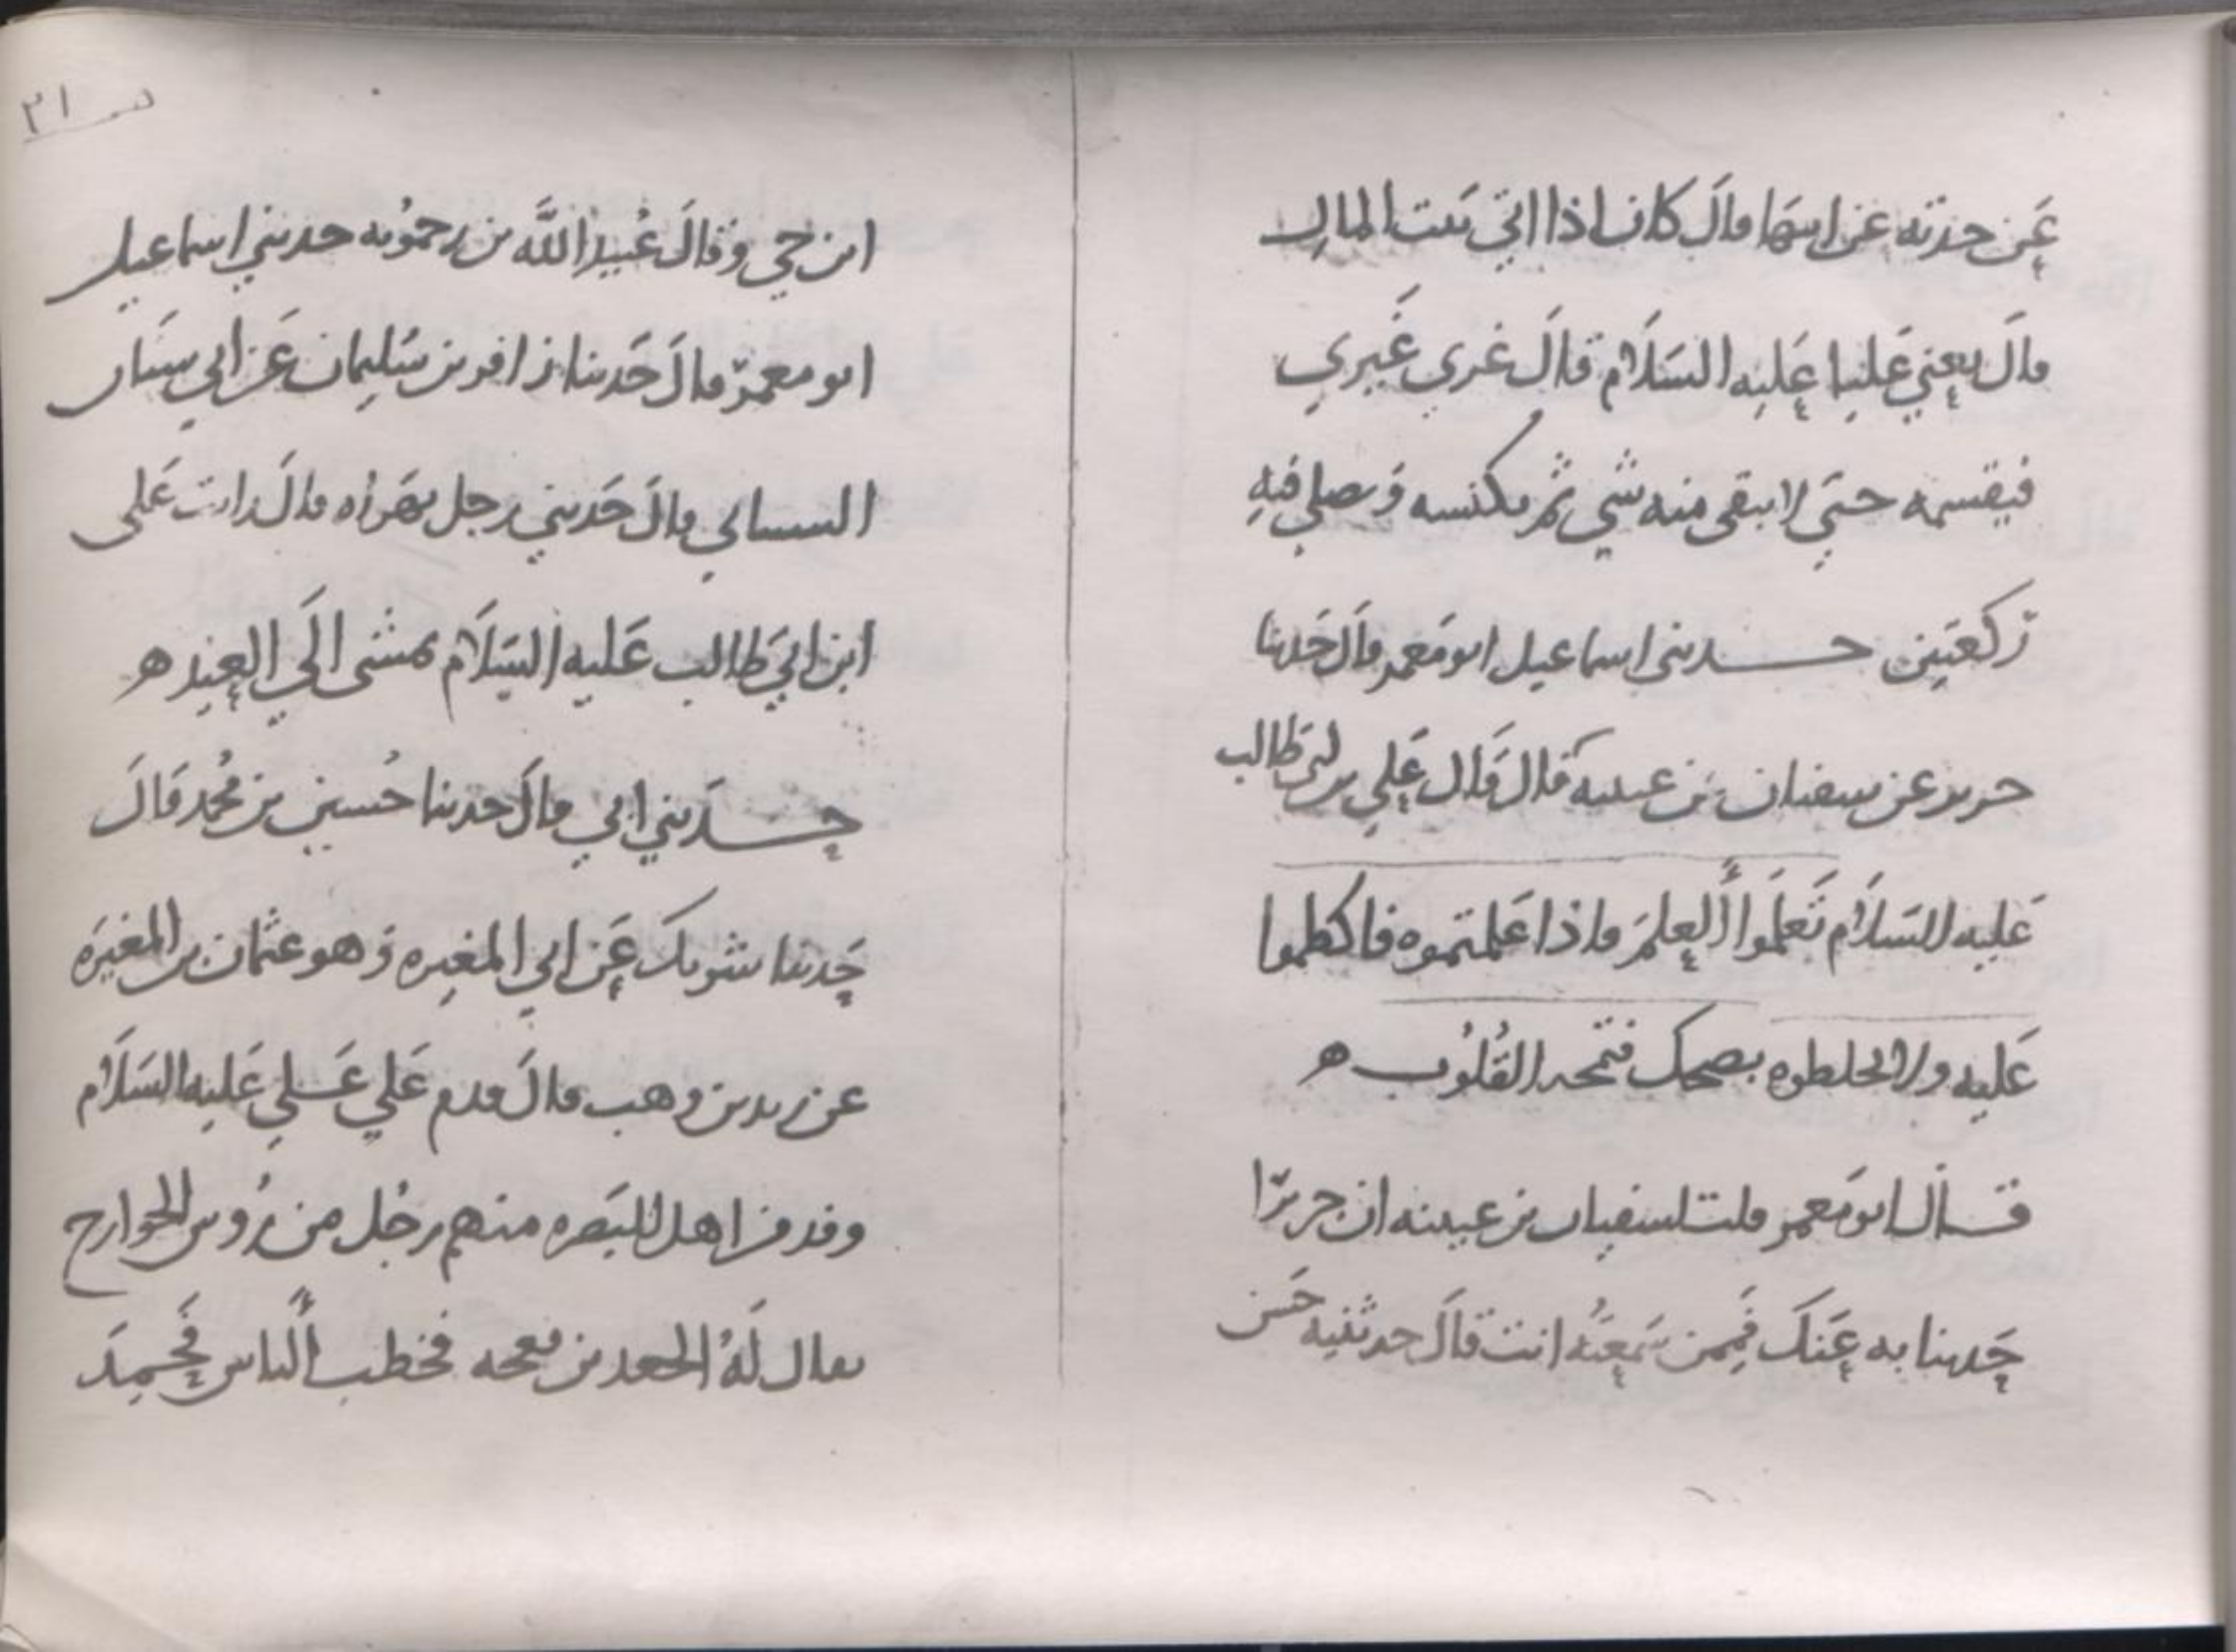 عن جدته عن ابيها قال كان اذا اتي بيت المال
قال يعني عليا عليه السلام قال غري غيري
فيقسمه حتي لا يبقى منه شي ثم يكنسه وَيصلي فيه
رَكعتين حدثنى اسماعيل ابو معمر قال حدثنا
جرير عن سفيان بن عيينه قال قال علي بن ابي طالب
عليه السلام تعلموا العلم فاذا علمتموه فاكظموا
عليه ولا تخلطوه بضحك فتمجه القُلوُب ه
قال ابو معمر قلت لسفيان بن عيينه ان جريرًا
حدثنا به عنك فممن سمعته انت قال حدثنيه حسن
صـ ٢١
ابن حي وقال عُبيد الله بن رحموُيه حدثني اسماعيل
ابو معمر قال حدثنا زافر بن سليمان عن ابي سنان
الشيباني قال حدثني رجل بهراه قال رايت على
ابن ابي طالب عليه السلام يمشى الي العيد ه
حدثني ابي قال حدثنا حُسين بن محُمد قال
حدثنا شريك عن ابي المغيره وَهو عثمان بن المغيرَه
عن زيد بن وهب قال قدم علي عَلي عليه السلام
وفد من اهل البصره منهم رجُل من رُوس الخوارج
يقال لَهُ الجعد بن نعجه فخطب الناس فحمِدَ